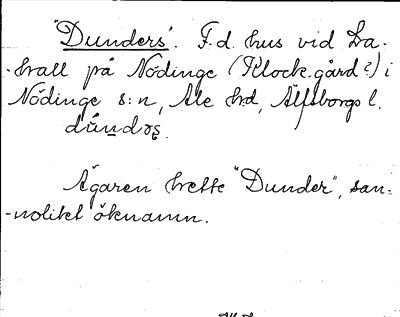 "Dunders". F.d. hus vid La-
-hall på Nödinge (Klock.gård?) i
Nödinge s:n, Ale hd, Älfsborgs l.
Ägaren hette "Dunder", san-
-nolikt öknamn.